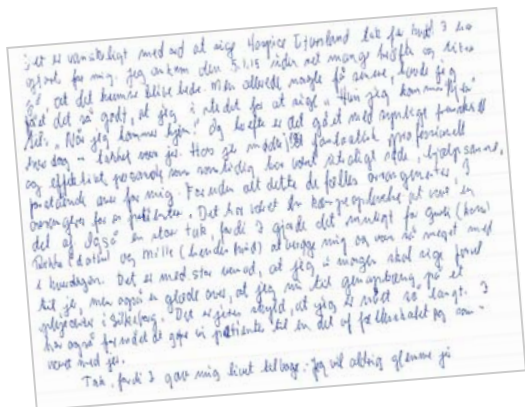 Det er vanskeligt med ord at sige Hospice Djursland tak for hvad I har
gjort for mig. Jeg ankom den 5.1.15 siden
så, at det kunne blive bedre. Men allerede nogle få senere, havde jeg
det så godt, at jeg i stedet for at sige "Hvis jeg kommer hjem"
"Når jeg kommer hjem". Og herefter er det gået med fremskridt
hver dag – takket være jer. Hos jer mødte jeg fantastisk professionelt
og effektivt personale som samtidig har været utroligt søde, hjælpsomme,
over for mig. Foruden alt dette de fælles arrangementer I
arrangerer for os patienter. Det har været en kæmpe oplevelse at være en
del af. Også en stor tak, fordi I gjorde det muligt for
(datter) og Mille (hendes hund) at besøge mig og være så meget med
i hverdagen. Det er med stor vemod, at jeg i morgen skal sige farvel
til jer, men også en glæde over, at jeg nu til genoptræning på et
plejecenter i Silkeborg. Det er jeres skyld, at jeg er nået så langt. I
har også forstået at gøre vi patienter til en del af fællesskabet og sam-
været med jer.
Tak, fordi I gav mig livet tilbage. Jeg vil aldrig glemme jer